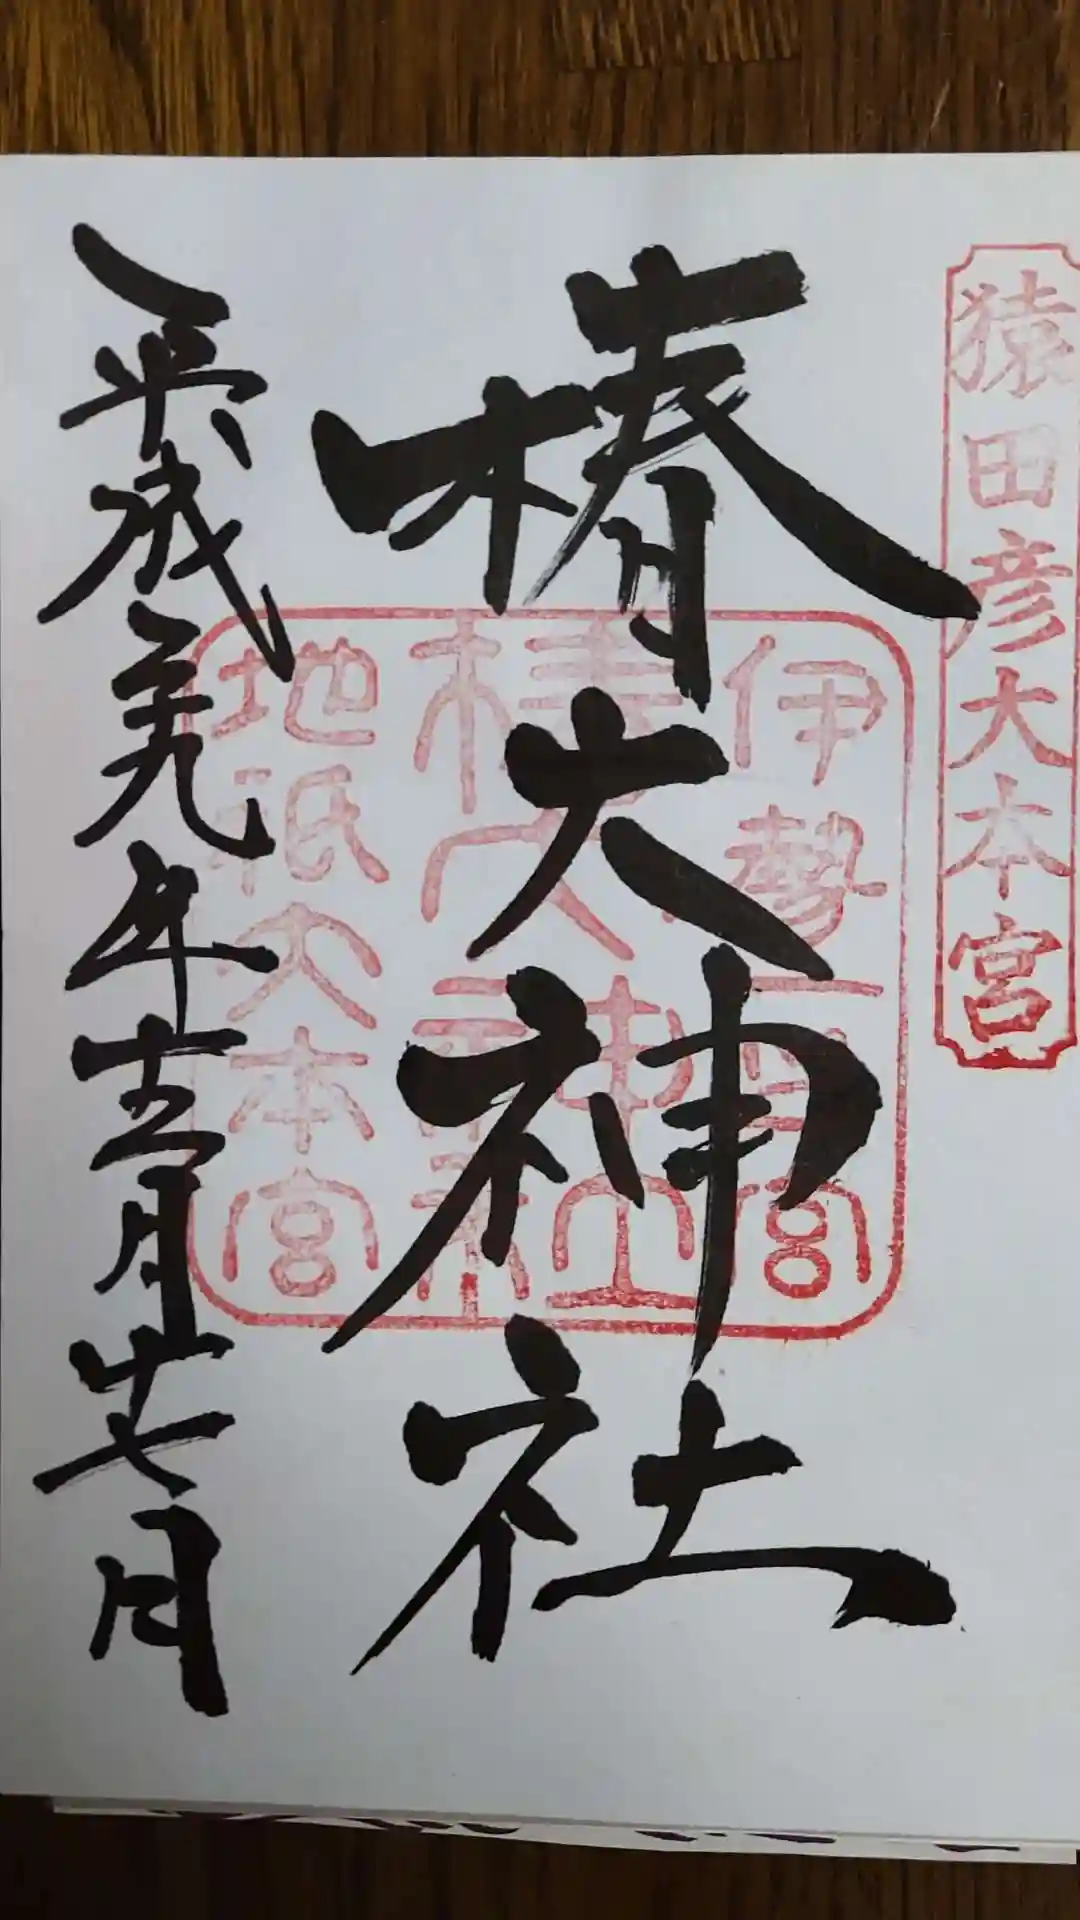 猿田彦大本宮
椿大神社
伊勢一之宮
椿大神社
地祇大本宮
平成二十九年五月廿七日